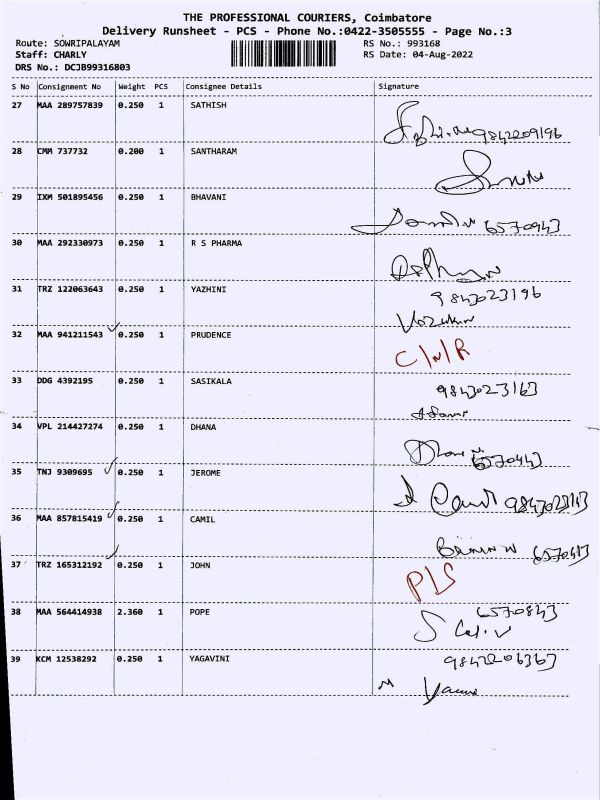 THE PROFESSIONAL COURIERS, Coimbatore
Delivery Runsheet - PCS - Phone No.:0422-3505555 - Page No.:3
Route: SOWRIPALAYAM RS No.: 993168
Staff: CHARLY RS Date: 04-Aug-2022
DRS No.: DCJB99316803
S No Consignment No Weight PCS Consignee Details Signature
27 MAA 289757839 0.250 1 SATHISH
9842209196
28 CMM 737732 0.200 1 SANTHARAM
29 IXM 501895456 0.250 1 BHAVANI
6570943
30 MAA 292330973 0.250 1 R S PHARMA
31 TRZ 122063643 0.250 1 YAZHINI
9843023196
32 MAA 941211543 0.250 1 PRUDENCE
C/N/R
33 DDG 4392195 0.250 1 SASIKALA
9843023163
34 VPL 214427274 0.250 1 DHANA
6570443
35 TNJ 9309695 0.250 1 JEROME
36 MAA 857815419 0.250 1 CAMIL
37 TRZ 165312192 0.250 1 JOHN
PLS
38 MAA 564414938 2.360 1 POPE
6570843
39 KCM 12538292 0.250 1 YAGAVINI
9842206363